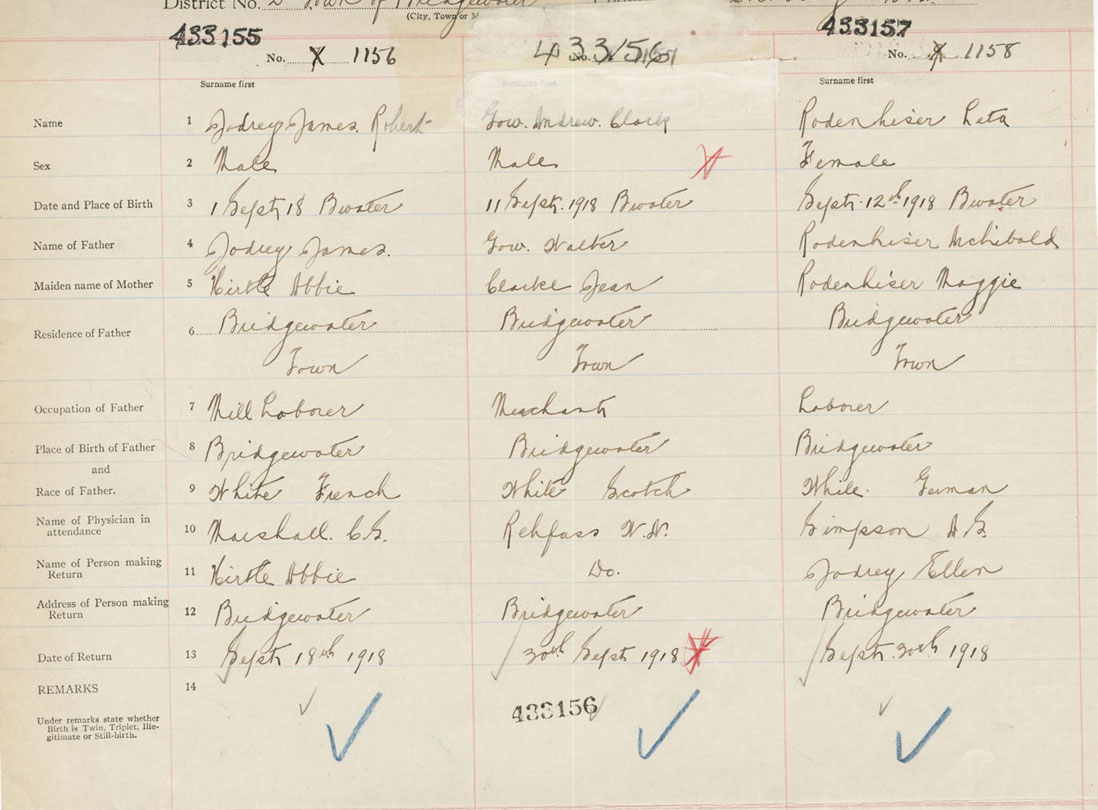 District No. 2 Town of Bridgewater
(City, Town or M
433155 433157
No. X 1156 433156 No. 1158
Surname first Surname first
Name 1 Jodrey James Robert Gow. Andrew. Clark Rodenhiser Leta
Sex 2 Male Male Female
Date and Place of Birth 3 1 Sept 18 Bwater 11 Sept. 1918 Bwater Sept. 12th 1918 Bwater
Name of Father 4 Jodrey James. Gow. Walter Rodenhiser Archibald
Maiden name of Mother 5 Hirtle Abbie Clarke Jean Rodenhiser Maggie
Residence of Father 6 Bridgewater Bridgewater Bridgewater
Town Town Town
Occupation of Father 7 Mill Laborer Merchant Laborer
Place of Birth of Father 8 Bridgewater Bridgewater Bridgewater
and
Race of Father. 9 White French White Scotch White. German
Name of Physician in attendance 10 Marshall. C.S. Rehfuss W.N. Simpson
Name of Person making Return 11 Hirtle Abbie Do. Jodrey Ellen
Address of Person making Return 12 Bridgewater Bridgewater Bridgewater
Date of Return 13 Sept 18th 1918 30th Sept 1918 Sept. 30th 1918
REMARKS 14
Under remarks state whether
Birth is Twin, Triplet, Ille-
gitimate or Still-birth.
433156